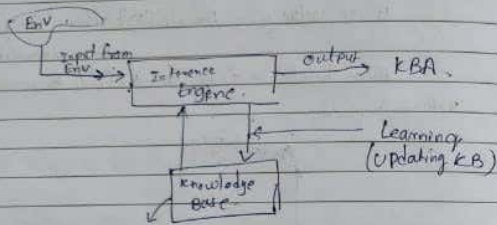 Env.
Input from
Env
Inference
Engene.
output
KBA.
Learning
(Updating KB)
Knowledge
Base.